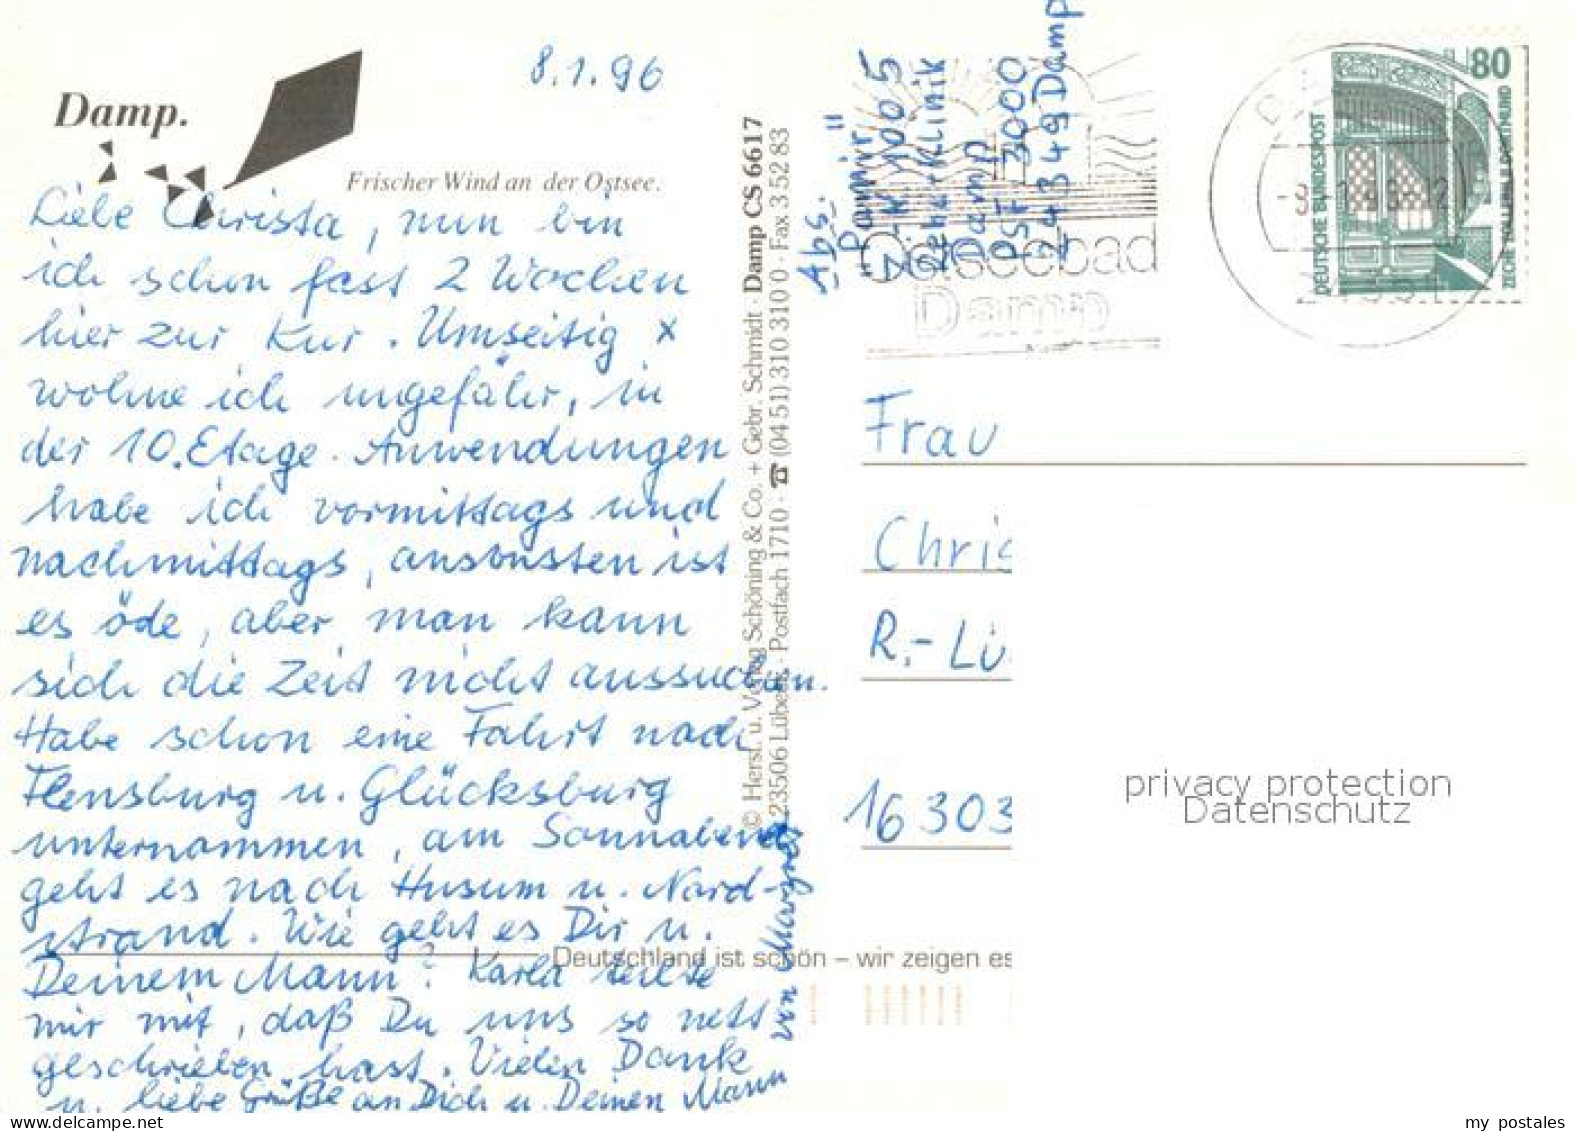 8.1.96
Damp.
Frischer Wind an der Ostsee.
Liebe Christa, nun bin
ich schon fast 2 Wochen
hier zur Kur. Umseitig x
wohne ich ungefähr, in
der 10. Etage. Anwendungen
habe ich vormittags und
nachmittags, ansonsten ist
es öde, aber man kann
sich die Zeit nicht aussuchen.
Habe schon eine Fahrt nach
Flensburg u. Glücksburg
unternommen, am Sonnabend
geht es nach Husum u. Nord-
strand. Wie geht es Dir u.
Deinem Mann? Karla teilte
mir mit, daß Du uns so nett
geschrieben hast. Vielen Dank
u. liebe Grüße an Dich u. Deinen Mann
von
© Herst. u. Verlag Schöning & Co. + Gebr. Schmidt · Damp CS 6617
23506 Lübeck · Postfach 1710 · ☎ (0451) 310 310 0 · Fax 3 52 83
Abs.
Z. K 1005
Reha-Klinik
Damp
PSF 3000
24349 Damp
Ostseebad
Damp
80
DEUTSCHE BUNDESPOST
ZECHE ZOLLERN II DORTMUND
Frau
Chris
R.-Lu
16303
privacy protection
Datenschutz
Deutschland ist schön – wir zeigen es
my postales